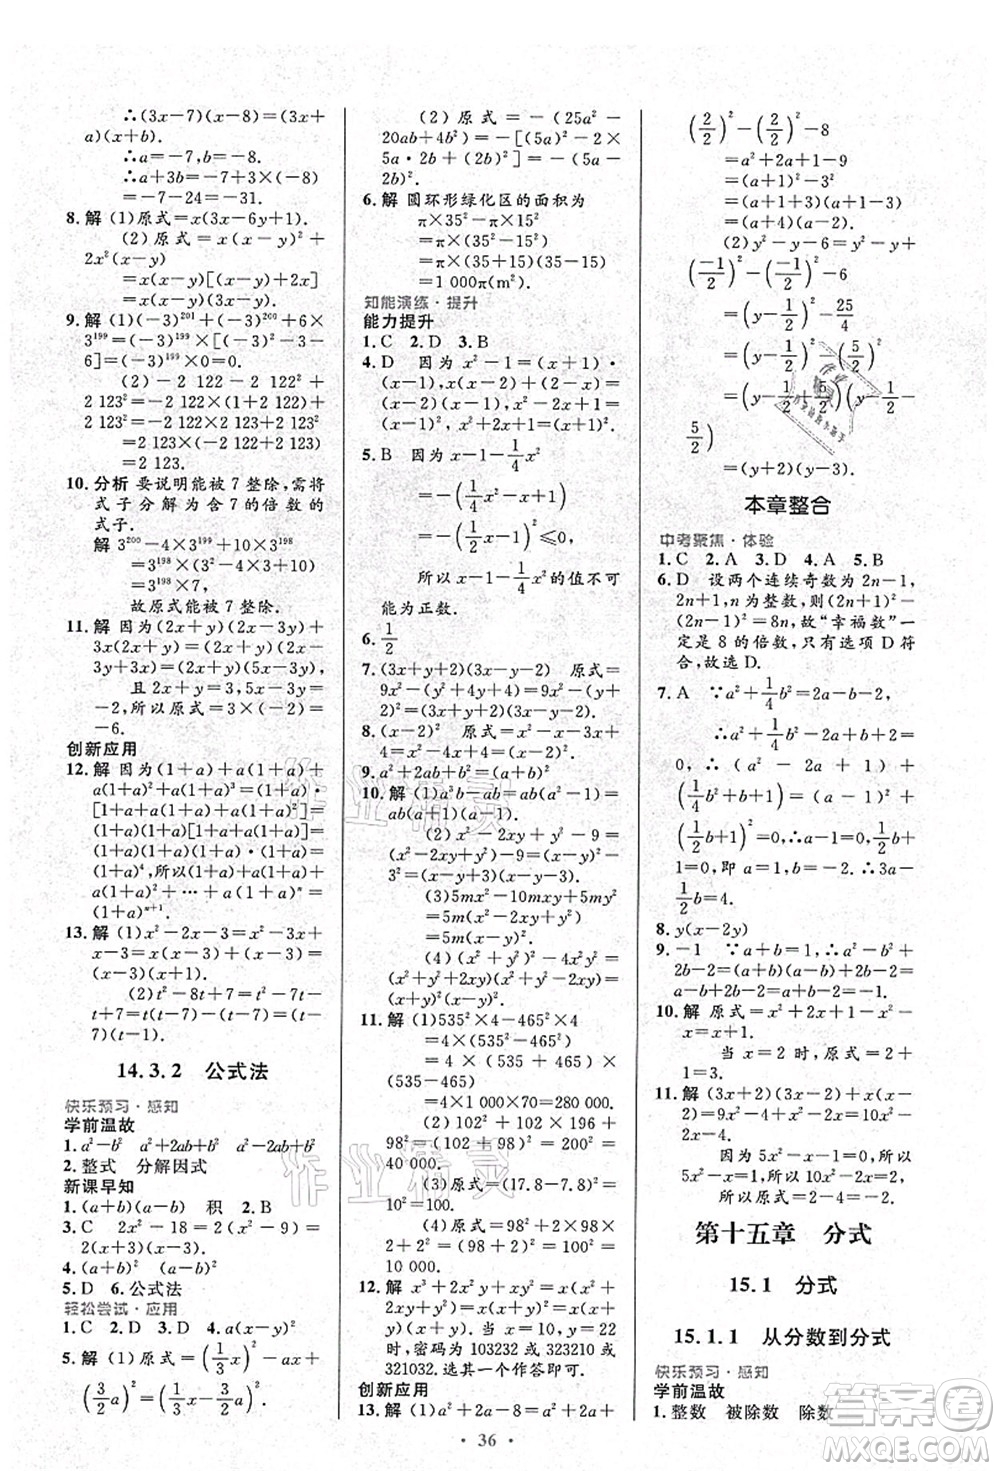 ∴(3x-7)(x-8)=(3x+
a)(x+b).
∴a=-7,b=-8.
∴a+3b=-7+3×(-8)
=-7-24=-31.
8. 解 (1)原式=x(3x-6y+1).
(2)原式=x(x-y)²+
2x²(x-y)
=x(x-y)[(x-y)+2x]
=x(x-y)(3x-y).
9. 解 (1)(-3)²⁰¹+(-3)²⁰⁰+6×
3¹⁹⁹=(-3)¹⁹⁹×[(-3)²+(-3)-
6]=(-3)¹⁹⁹×0=0.
(2)-2 122-2 122×(-
2 123)=-2 122×(1-2 123)+
2 123²=-2 122×2 123+2 123²=
2 123×(-2 122+2 123)=
2 123.
10. 分析 要说明能被7整除,需将
式子分解为含7的倍数的
式子.
解 3²⁰⁰-4×3¹⁹⁹+10×3¹⁹⁸
=3¹⁹⁸×(3²-4×3+10)
=3¹⁹⁸×7,
故原式能被7整除.
11. 解 因为(2x+y)(2x-3y)+
3x(2x+y)=(2x+y)(2x-
3y+3x)=(2x+y)(5x-3y),
且2x+y=3,5x-3y=
-2,所以原式=3×(-2)=
-6.
创新应用
12. 解 因为1+a+a(1+a)+
a(1+a)²+a(1+a)³=
[1+a+a(1+a)+a(1+a)²]
(1+a)=[1+a+a(1+a)]
(1+a)(1+a)=(1+a)(1+
a)(1+a)(1+a)=(1+
a)⁴,所以1+a+a(1+a)+
a(1+a)²+…+a(1+a)ⁿ=
(1+a)ⁿ⁺¹.
13. 解 (1)x²-2x-3=x²+
x-3x-3=x(x+1)-3(x+
1)=(x+1)(x-3).
(2)t²-8t+7=t²-t-
7t+7=t(t-1)-7(t-1)=(t-
7)(t-1).
14.3.2 公式法
快乐预习·感知
学前温故
1. a²-b² a²+2ab+b² a²-2ab+b²
2. 整式 分解因式
新课早知
1. (a+b)(a-b) 积 2. B
3. C 2x²-18=2(x²-9)=
2(x+3)(x-3).
4. (a+b)² (a-b)²
5. D 6. 公式法
轻松尝试·应用
1. C 2. D 3. D 4. a(x-1)²
5. 解 (1)原式=(1/3 x)²-ax+
(3/2 a)²=(1/3 x-3/2 a)².
(2)原式=-(25a²-
20ab+4b²)=-[(5a)²-2×
5a·2b+(2b)²]=-(5a-
2b)².
6. 解 圆环形绿化区的面积为
π×35²-π×15²
=π×(35²-15²)
=π×(35+15)×(35-15)
=1 000π(m²).
知能演练·提升
能力提升
1. C 2. D 3. B
4. D 因为x²-1=(x+1)·
(x-1),x(x-2)+(2-x)=
(x-2)(x-1),x²-2x+1=
(x-1)²,x²+2x+1=(x+
1)²,故选D.
5. B 因为x-1-1/4 x²
=-(1/4 x²-x+1)
=-(1/2 x-1)²,
所以x-1-1/4 x²的值不可
能为正数.
6. 1/2
7. (3x+y+2)(3x-y) 原式=
9x²-(y+1)²+6x+1=
9x²+6x+1-(y+1)²=
(3x+1)²-(y+1)²=
(3x+y+2)(3x-y).
8. (x-2)² 原式=x²-3x-
x+4=x²-4x+4=(x-2)².
9. a²+2ab+b²=(a+b)²
10. 解 (1)a³b-ab=ab(a²-1)=
ab(a+1)(a-1).
(2)x²-2xy+y²-9=
(x-y)²-9
=(x-y+3)(x-y-3).
(3)5mx²-10mxy+5my²
=5m(x²-2xy+y²)
=5m(x-y)².
(4)(x²+z²)²-4x²z²=
(x²+z²+2xz)(x²+z²-2xz)
=(x+z)²(x-z)².
11. 解 (1)535²×4-465²×4
=4×(535²-465²)
=4×(535+465)×
(535-465)
=4×1 000×70=280 000.
(2)102²+102×196+
98²=(102+98)²=200²=
40 000.
(3)原式=(17.8-7.8)²
=10²=100.
(4)原式=98²+2×98×
2+2²=(98+2)²=100²=
10 000.
12. 解 x³+2x²y+xy²=
x(x²+2xy+y²)=x(x+y)².
当x=10,y=22时,x+y=32.
用上述方法产生的密码有三
种:分别为103232或323210或
321032.选其一个作答即可.
创新应用
13. 解 (1)a²-2a-8=a²-2a+
(2/2)²-(2/2)²-8
=a²-2a+1-9
=(a-1)²-3²
=(a-1+3)(a-1-3)
=(a+2)(a-4).
(2)y²-y-6=y²-y+
(-1/2)²-(-1/2)²-6
=(y-1/2)²-25/4
=(y-1/2)²-(5/2)²
=(y-1/2+5/2)(y-1/2-
5/2)
=(y+2)(y-3).
本章整合
中考聚焦·体验
1. C 2. A 3. D 4. A 5. B
6. D 设两个连续奇数为2n-1,
2n+1,n为整数,则(2n+1)²-
(2n-1)²=8n,故“幸福数”一
定是8的倍数,只有选项D符
合,故选D.
7. A ∵a²+1/4 b²=2a-b-2,
∴a²-2a+1+1/4 b²+b+
1=0,∴(a-1)²+
(1/4 b²+b+1)=(a-1)²+
(1/2 b+1)²=0,∴a-1=0,1/2 b+
1=0,即a=1,b=-2,∴3a+
1/2 b=4.
8. y(x-2y)
9. -1 ∵a+b=1,∴a²-b²+
2b-2=(a+b)(a-b)+
2b-2=a-b+2b-2=a+
b-2=-1.
10. 解 原式=x²-1+2x-x²
=2x-1.
当x=1时,2x-1=2×
1-1=1.
11. 解 (3x+2)(3x-2)-5x(x-
1)-(2x-1)²
=9x²-4-5x²+5x-
4x²+4x-1=9x-5.
因为9x=5-5x,所以
9x-5=-5x,所以
所以原式=9x-5=-5x.
第十五章 分式
15.1 分式
15.1.1 从分数到分式
快乐预习·感知
学前温故
1. 整数 被除数 除数
· 36 ·
作业精灵
作业精灵
答案圈
MXQE.COM